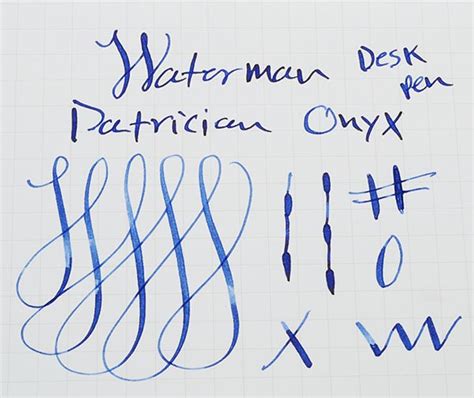 Waterman Desk pen
Patrician Onyx
#
0
X